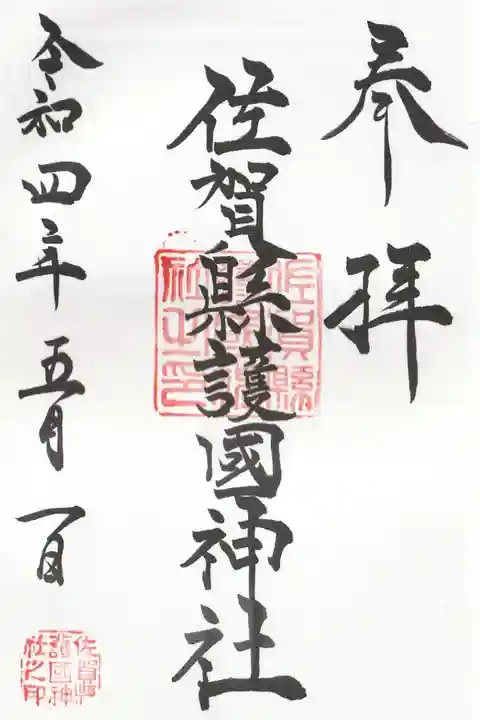 奉拝
佐賀縣護國神社
佐賀縣護國神社之印
令和四年五月一日
佐賀縣護國神社之印